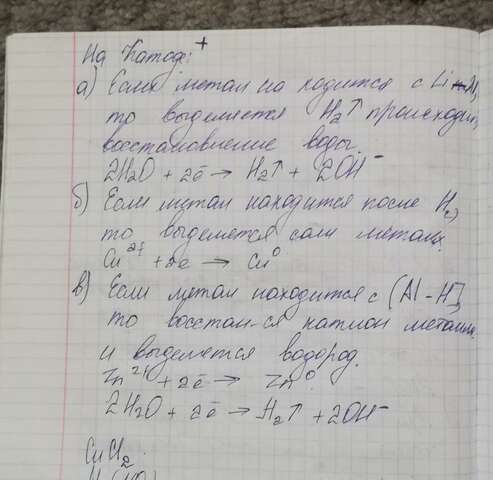 На Катоде: +
а) Если метал на ходится с Li-Al,
то выделяется H₂↑ происходит
восстановление воды.
2H₂O + 2ē → H₂↑ + 2OH⁻
б) Если метал находится после H₂,
то выделется сам металл.
Cu²⁺ + 2ē → Cu⁰
в) Если метал находится с (Al - H],
то восстан-ся катион металла
и выделется водород.
Zn²⁺ + 2ē → Zn⁰
2H₂O + 2ē → H₂↑ + 2OH⁻
CuCl₂